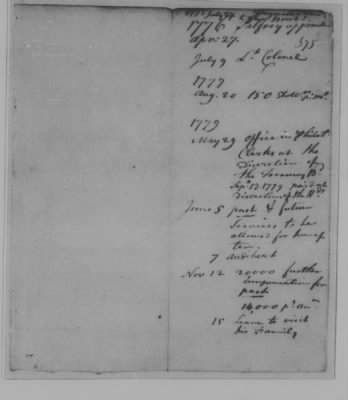 1776 Palfrey appointed
Apr. 27.
395
July 9 Lt. Colonel
1777
Aug. 20 150 Doll. pr. Mo.
1779
May 29 office in Philada.
Clerks at the
Discretion of
the Treasury Bd.
Sepr. 13. 1779 paid at
discretion of the
June 5 past & future
Services to be
allowed for
7
Nov 12 20000 further
Compensation for
past
14,000 pr. ann.
15 Leave to visit
his Family